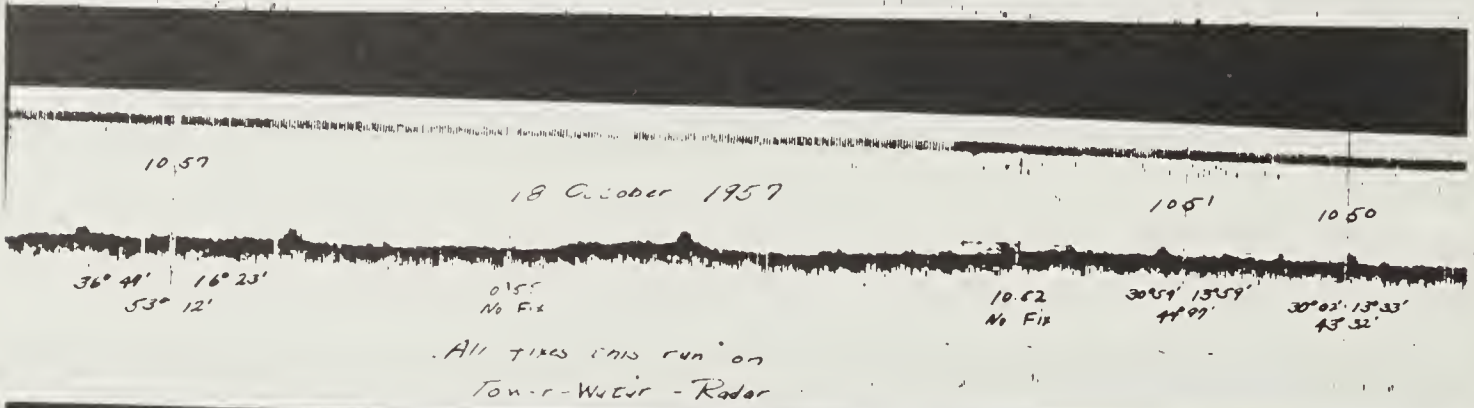 10 57
18 October 1957
10 51
10 50
36° 49' 16° 23'
53° 12'
No Fix
10.52
No Fix
30°54' 13°59'
30°02' 13°33'
43°32'
All fixes this run on
Radar